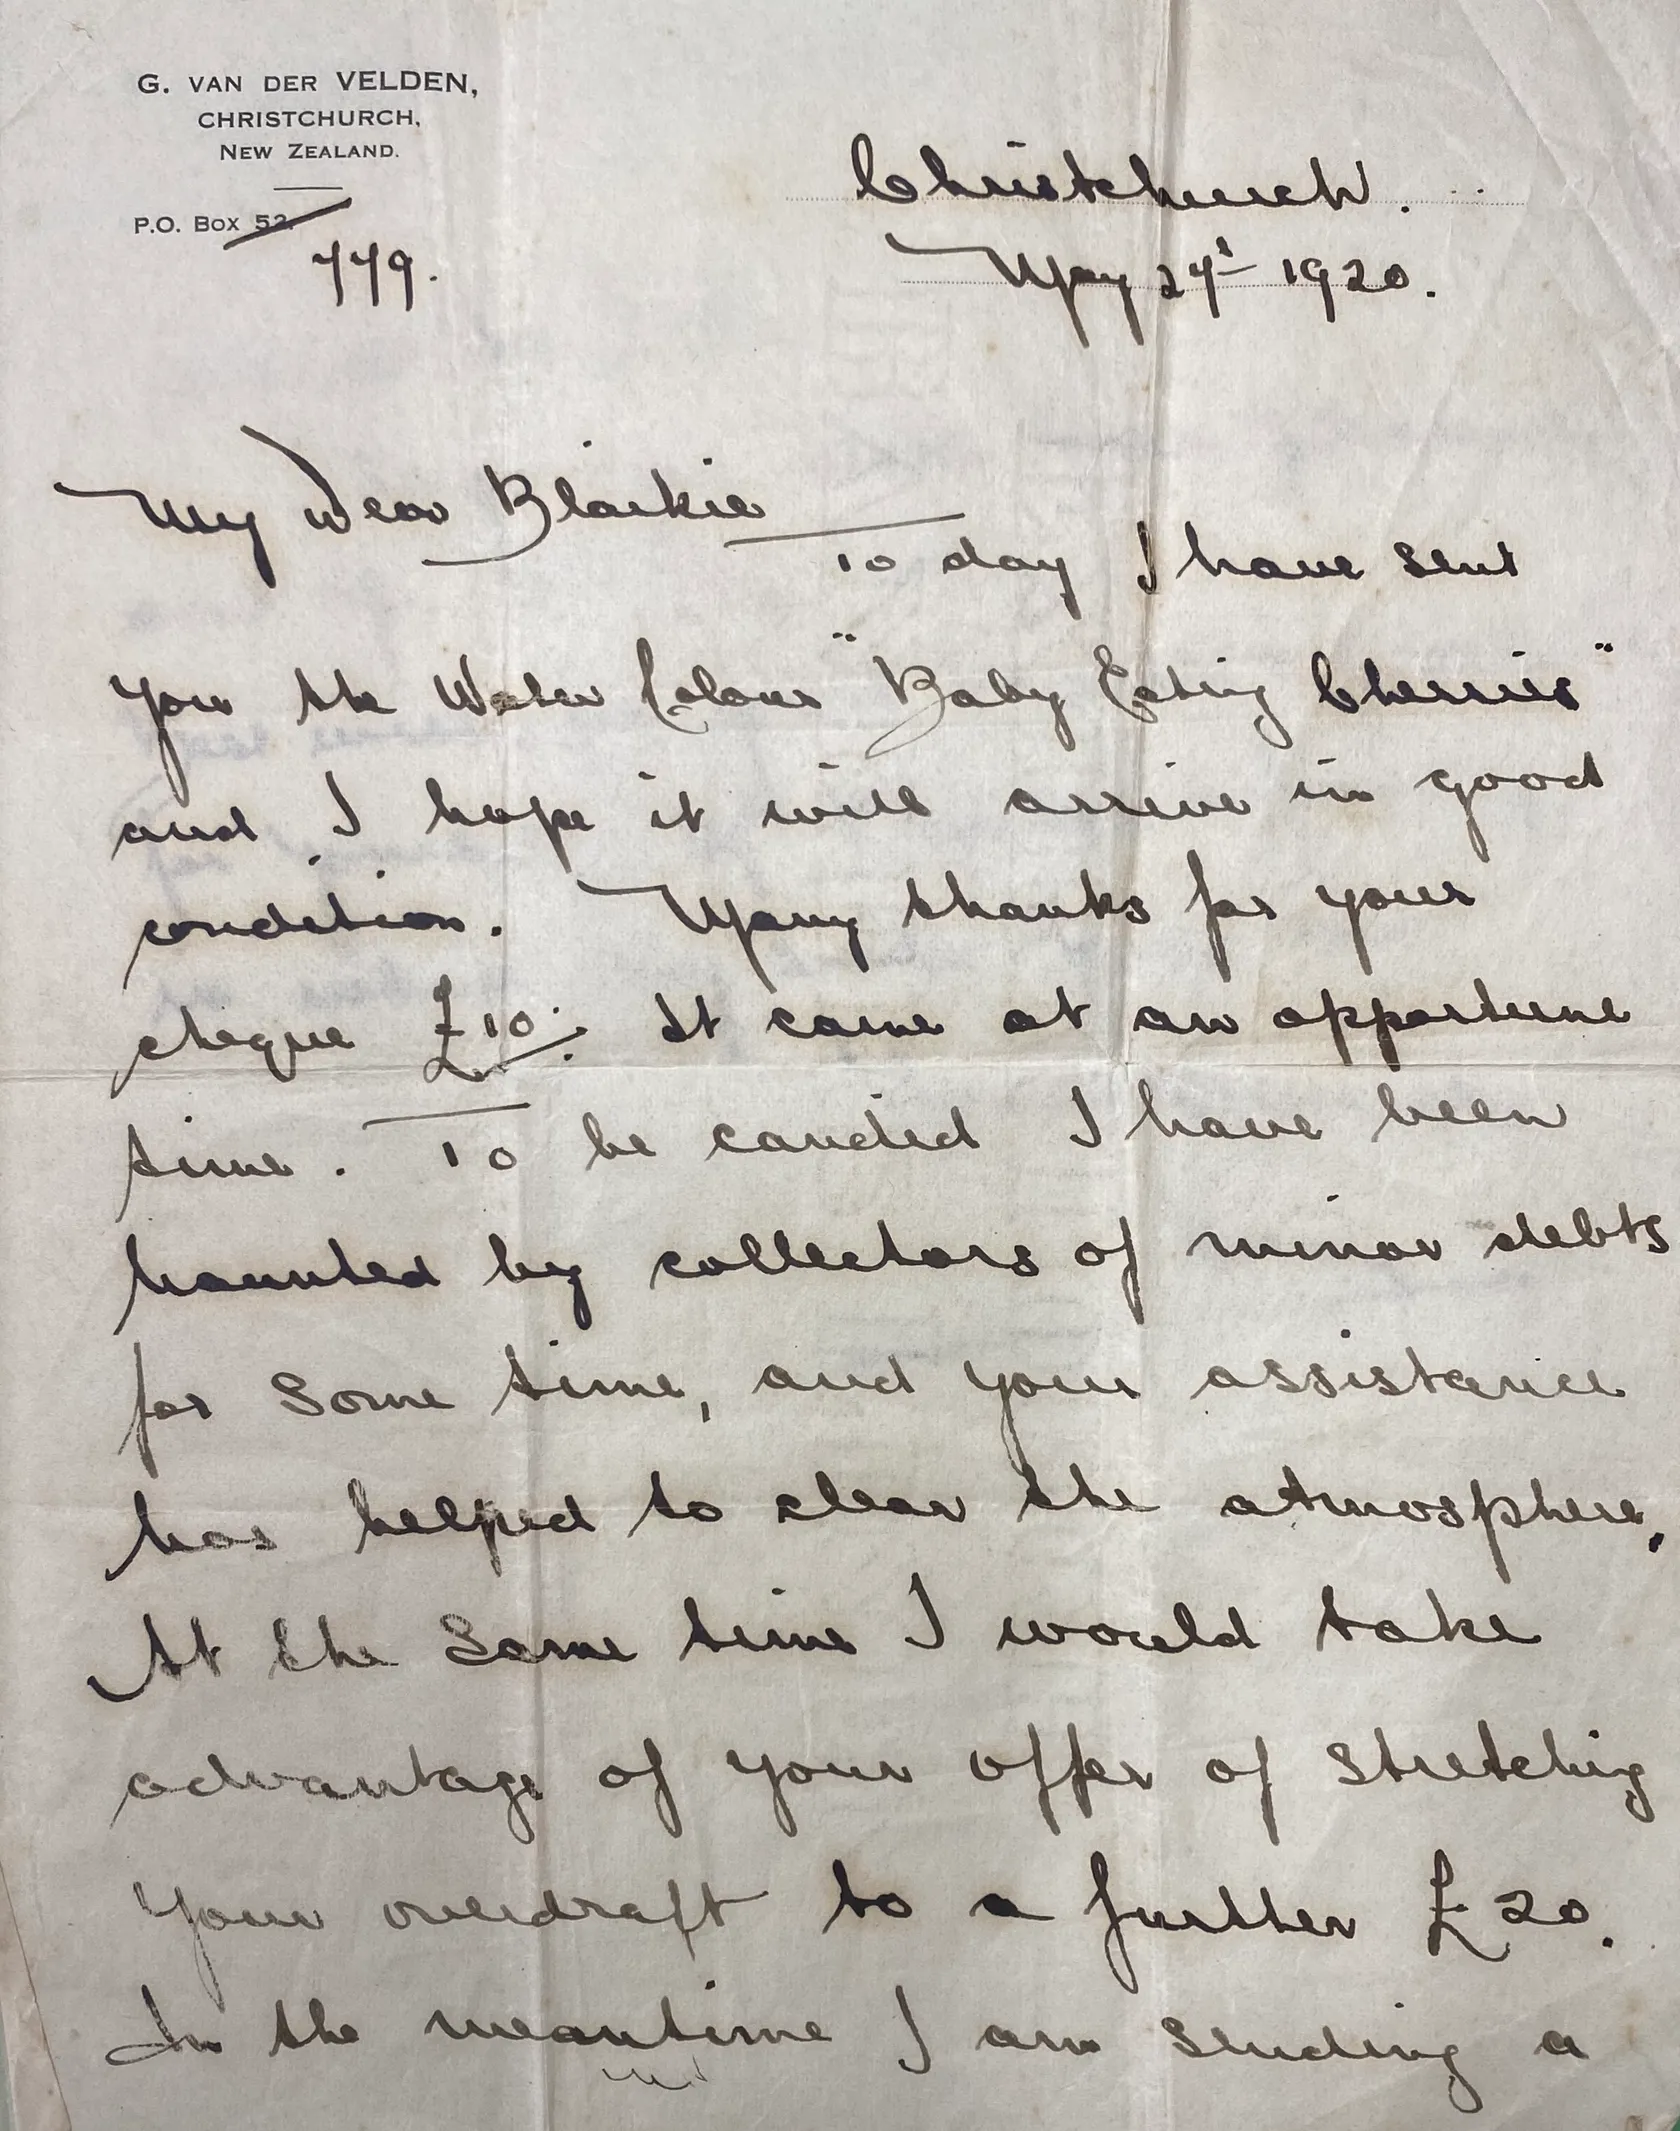 G. VAN DER VELDEN,
CHRISTCHURCH,
NEW ZEALAND.
P.O. Box 52
779.
Christchurch.
May 27t 1920.
My Dear Blaikie
To day I have sent
you the Water Colour "Baby Eating Cherries"
and I hope it will arrive in good
condition. Many thanks for your
cheque £10. It came at an opportune
time. To be candid I have been
haunted by collectors of minor debts
for some time, and your assistance
has helped to clear the atmosphere.
At the same time I would take
advantage of your offer of stretching
your overdraft to a further £20.
In the meantime I am sending a